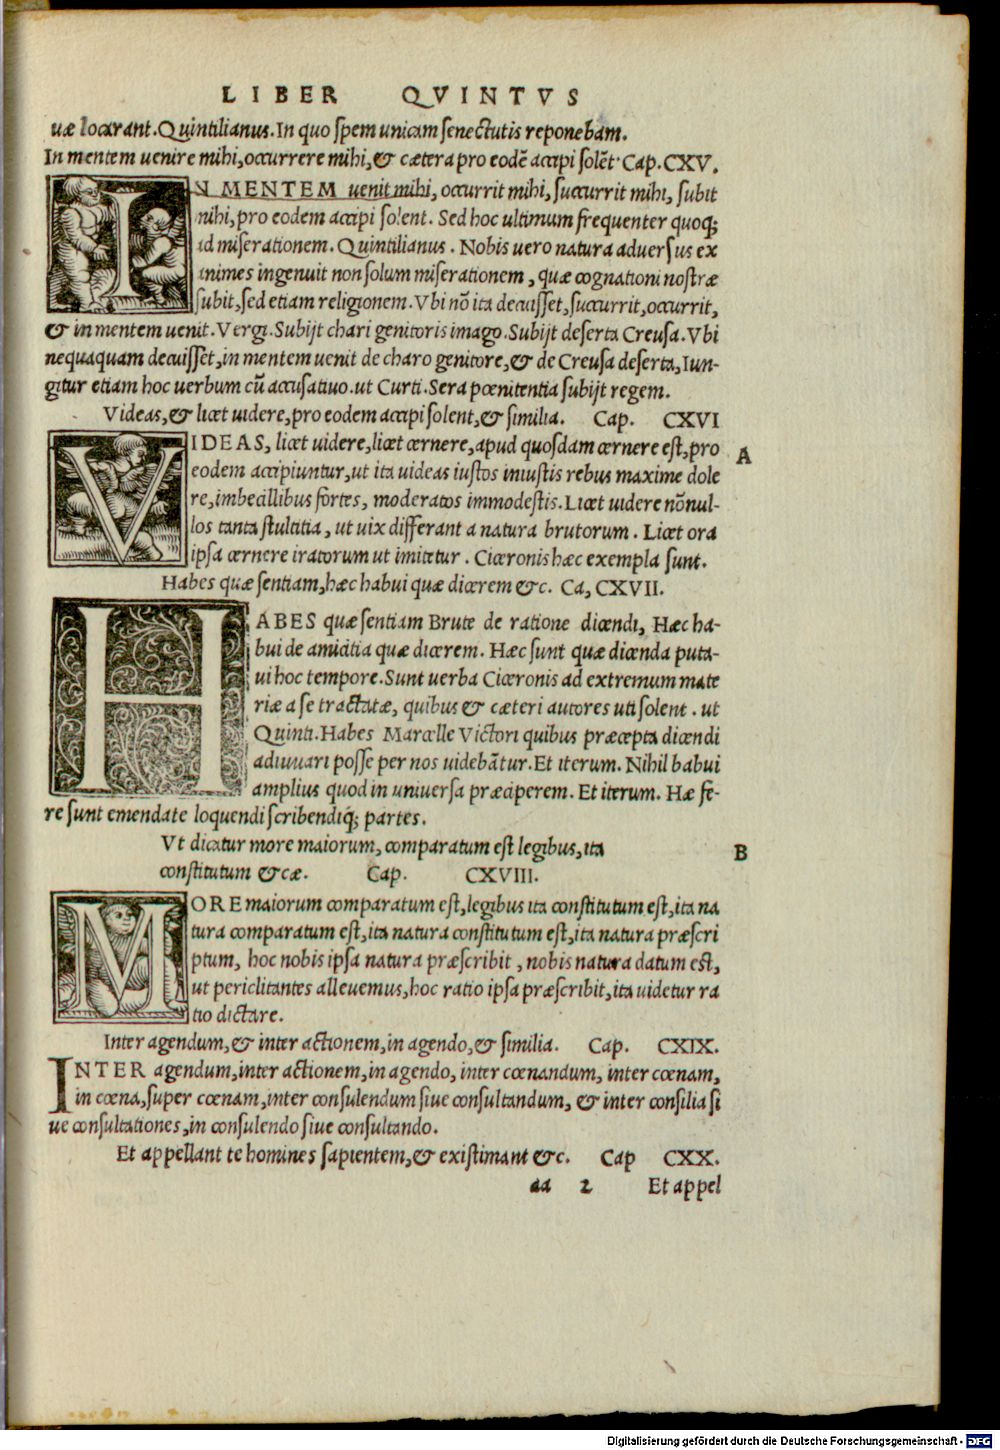 LIBER QVINTVS
uæ locarant. Quintilianus. In quo spem unicam senectutis reponebam.
In mentem uenire mihi, occurrere mihi, & cætera pro eodē accipi solēt Cap. CXV.
IN MENTEM uenit mihi, occurrit mihi, succurrit mihi, subit
mihi, pro eodem accipi solent. Sed hoc ultimum frequenter quoq;
ad miserationem. Quintilianus. Nobis uero natura aduersus ex
animes ingenuit non solum miserationem, quæ cognationi nostræ
subit, sed etiam religionem. Vbi nō ita decuisset, succurrit, occurrit,
& in mentem uenit. Vergi. Subijt chari genitoris imago. Subijt deserta Creusa. Vbi
nequaquam decuisset, in mentem uenit de charo genitore, & de Creusa deserta, Iun-
gitur etiam hoc uerbum cū accusatiuo. ut Curti. Sera pœnitentia subijt regem.
Videas, & licet uidere, pro eodem accipi solent, & similia. Cap. CXVI
VIDEAS, licet uidere, licet cernere, apud quosdam cernere est, pro
A
eodem accipiuntur, ut ita uideas iustos iniustis rebus maxime dole
re, imbecillibus fortes, moderatos immodestis. Licet uidere nōnul-
los tanta stultitia, ut uix differant a natura brutorum. Licet ora
ipsa cernere iratorum ut imitetur. Ciceronis hæc exempla sunt.
Habes quæ sentiam, hæc habui quæ dicerem &c. Ca, CXVII.
HABES quæ sentiam Brute de ratione dicendi, Hæc ha-
bui de amicitia quæ dicerem. Hæc sunt quæ dicenda puta-
ui hoc tempore. Sunt uerba Ciceronis ad extremum mate
riæ a se tractatæ, quibus & cæteri autores uti solent. ut
Quinti. Habes Marcelle Victori quibus præcepta dicendi
adiuuari posse per nos uidebātur. Et iterum. Nihil babui
amplius quod in uniuersa præciperem. Et iterum. Hæ fe-
re sunt emendate loquendi scribendiq́; partes.
Vt dicatur more maiorum, comparatum est legibus, ita
B
constitutum & cæ. Cap. CXVIII.
MORE maiorum comparatum est, legibus ita constitutum est, ita na
tura comparatum est, ita natura constitutum est, ita natura præscri
ptum, hoc nobis ipsa natura præscribit, nobis natura datum est,
ut periclitantes alleuemus, hoc ratio ipsa præscribit, ita uidetur ra
tio dictare.
Inter agendum, & inter actionem, in agendo, & similia. Cap. CXIX.
INTER agendum, inter actionem, in agendo, inter cœnandum, inter cœnam,
in cœna, super cœnam, inter consulendum siue consultandum, & inter consilia si
ue consultationes, in consulendo siue consultando.
Et appellant te homines sapientem, & existimant &c. Cap CXX.
aa 2 Et appel
Digitalisierung gefördert durch die Deutsche Forschungsgemeinschaft - DFG